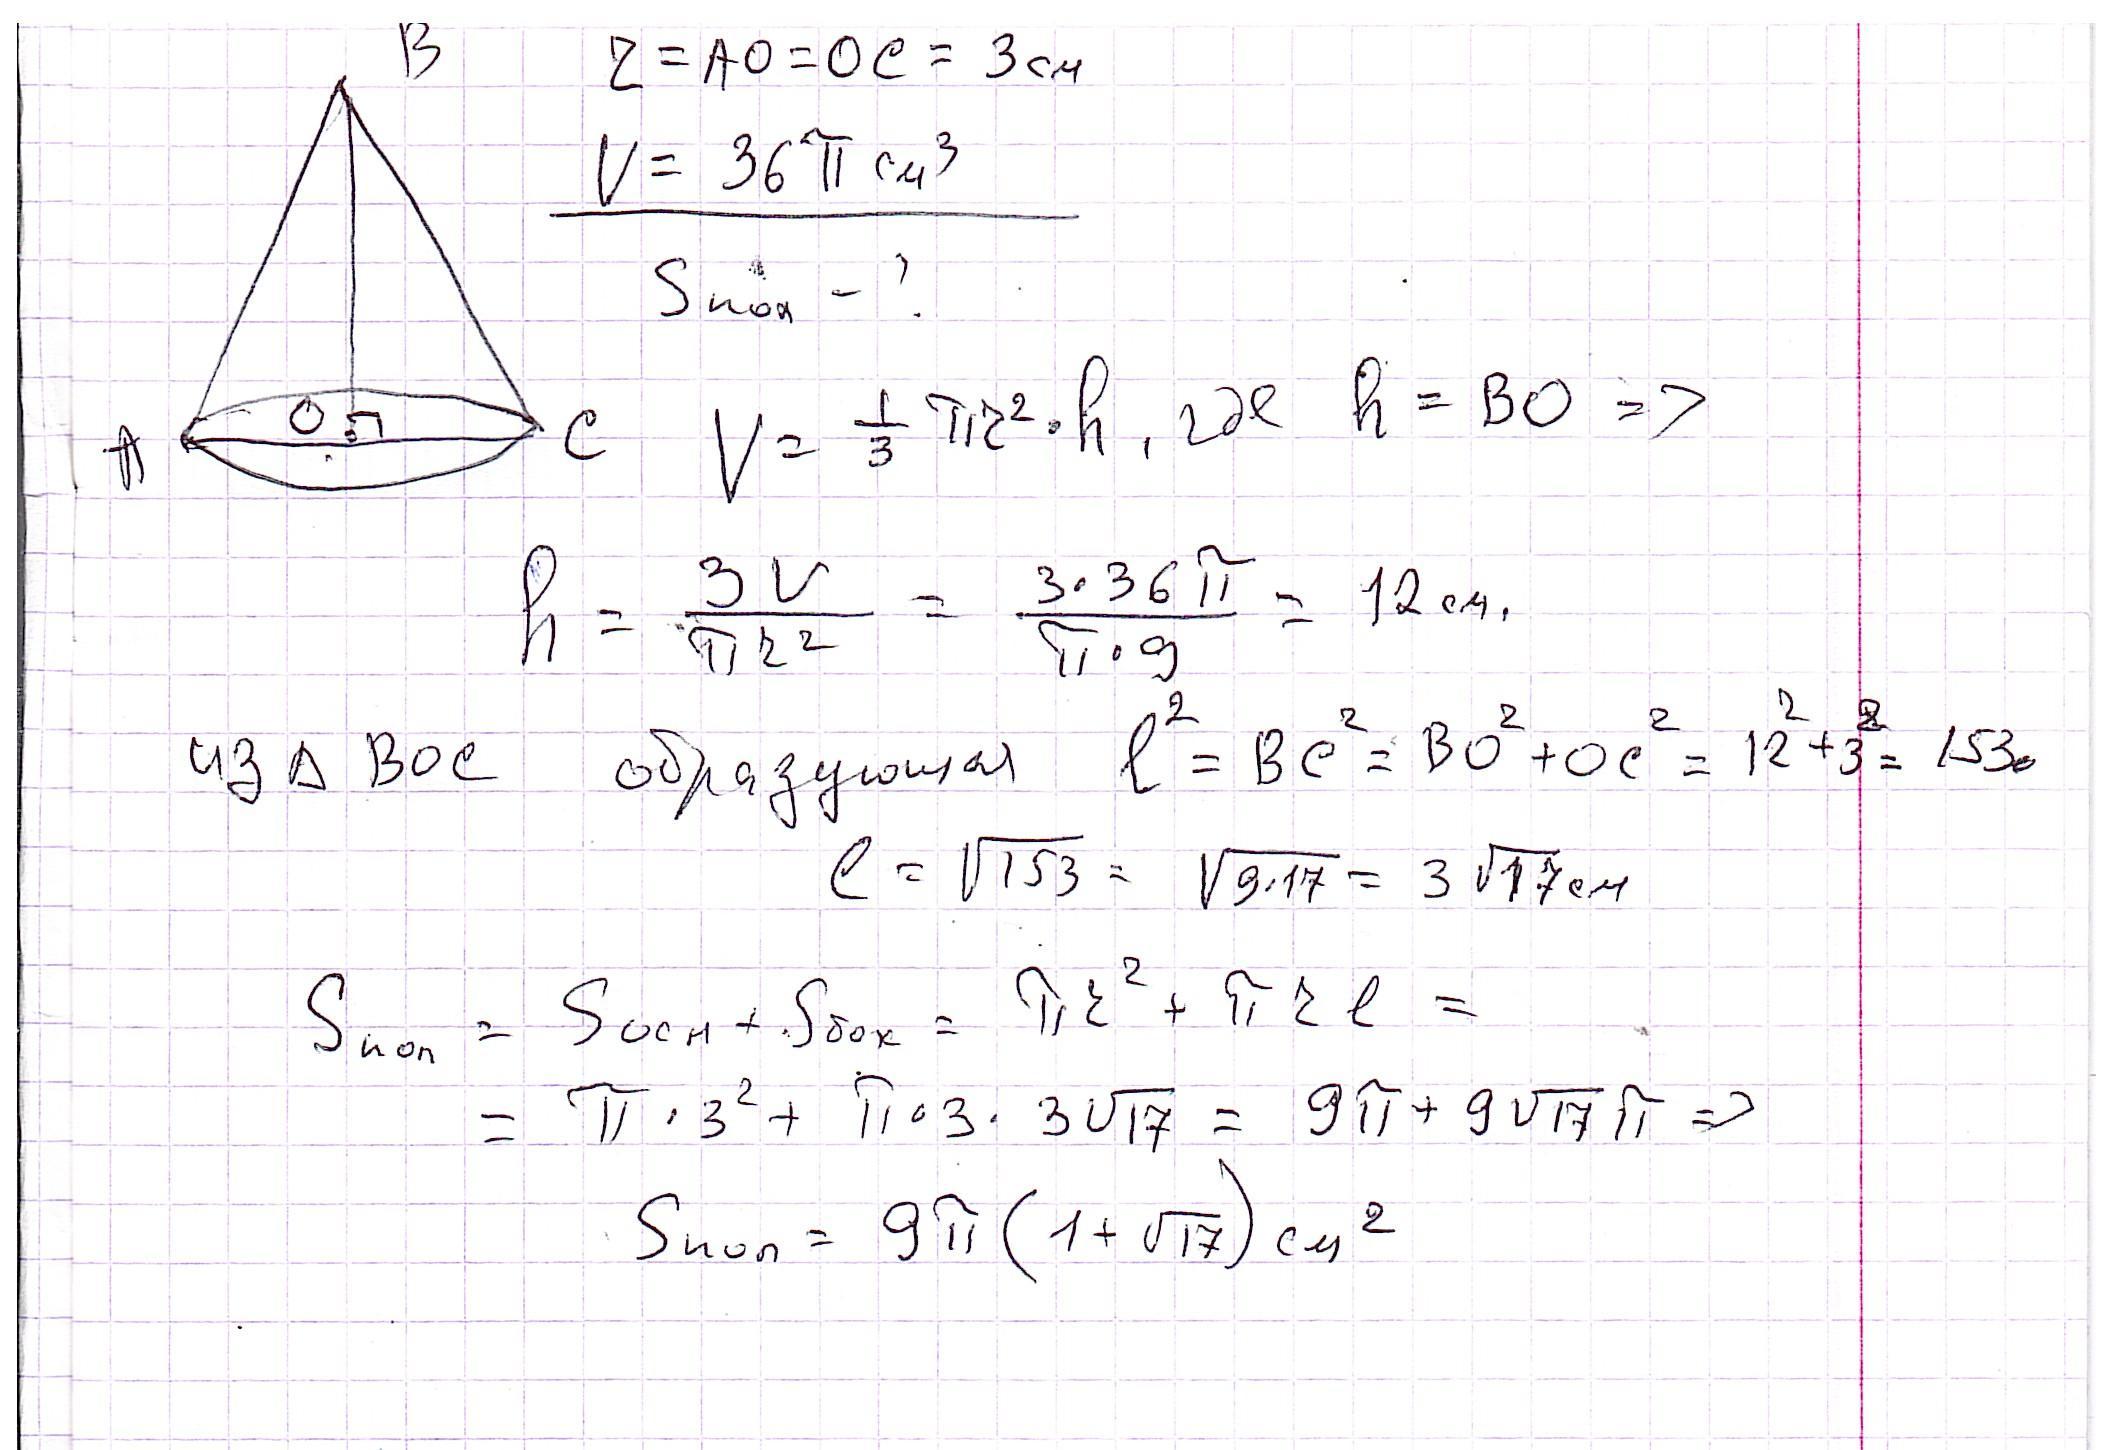 B
r = AO = OC = 3 см
V = 36π см³
Sпол - ?
A
O
C
V = 1/3 πr² · h, где h = BO =>
h = 3V/πr² = 3·36π/π·9 = 12 см.
из Δ BOC образующая l² = BC² = BO² + OC² = 12² + 3² = 153.
l = √153 = √9·17 = 3√17 см
Sпол = Sосн + Sбок = πr² + πrl =
= π · 3² + π · 3 · 3√17 = 9π + 9√17 π =>
Sпол = 9π (1 + √17) см²